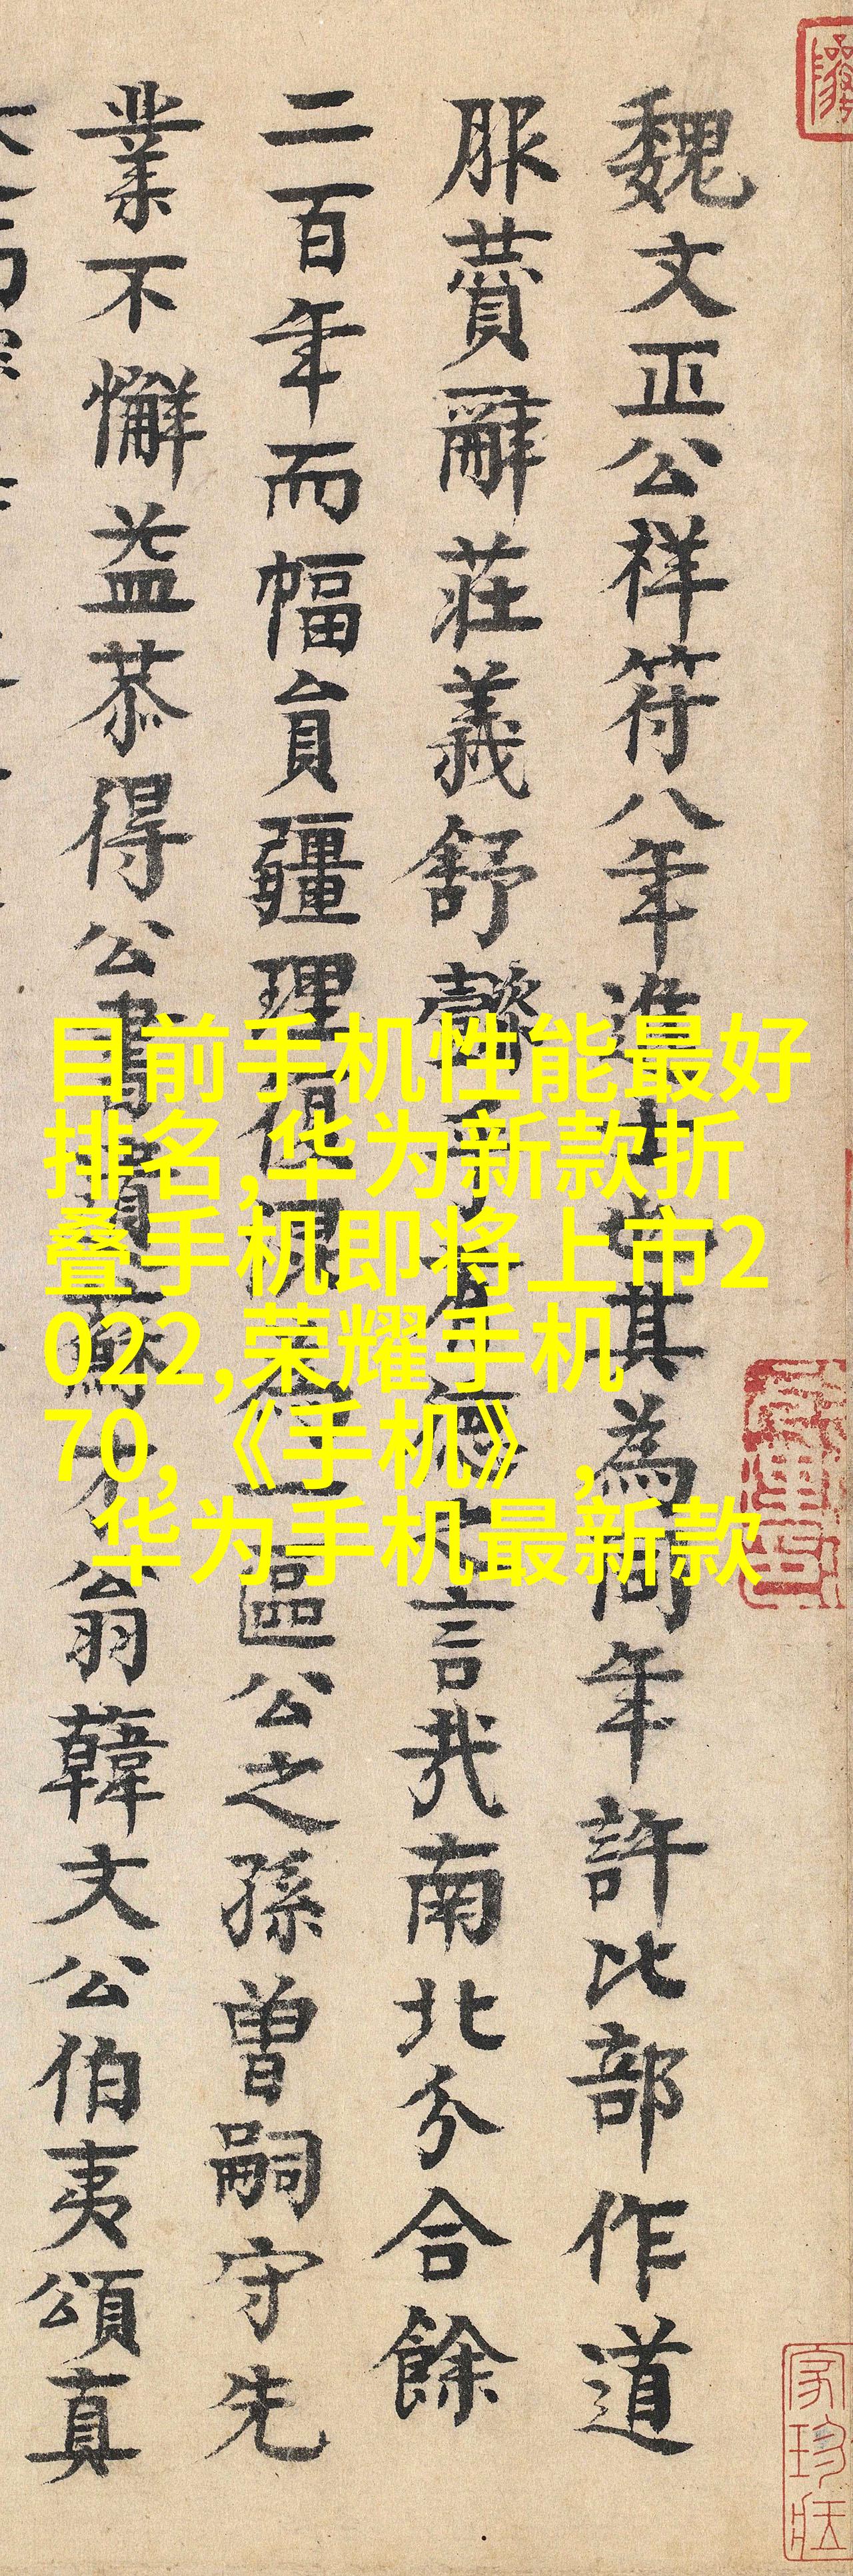 魏文正公祥符八年進士也其為同年許比部作道
服賛辭莊義舒韻乎有德之言哉南北分合餘
二百年而幅員疆理偎公之孫曾嗣守先
業不懈益恭得公書寶蘇才翁韓文公伯夷頌真
目前手机性能最好
排名,华为新款折
叠手机即将上市2
022,荣耀手机
70,《手机》,
华为手机最新款
家珍